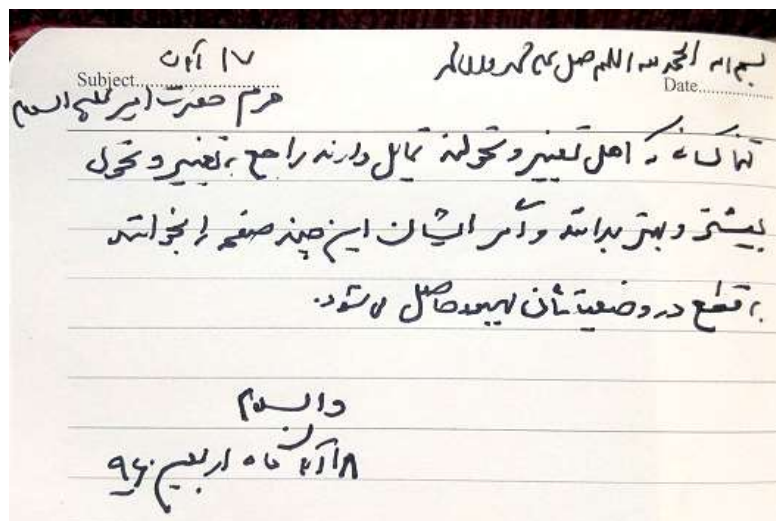 بسم الله الحمد لله اللهم صل علی محمد و آل محمد
۱۷ آبان
Subject..............
Date............
حرم حضرت امیر علیه السلام
تنها کسانی که اهل تغییر و تحولند تمایل دارند راجع به تغییر و تحول
بیشتر و بهتر بدانند و اگر ایشان این چند صفحه را بخوانند
به قطع در وضعیتشان بهبود حاصل می‌شود.
والسلام
۱۸ آبان ماه اربعین ۹۶